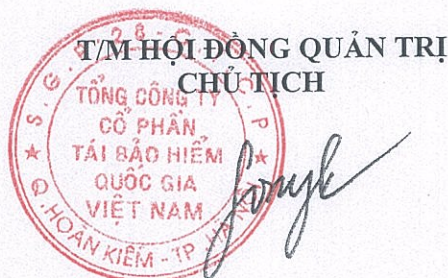 T/M HỘI ĐỒNG QUẢN TRỊ
CHỦ TỊCH
TỔNG CÔNG TY
CỔ PHẦN
TÁI BẢO HIỂM
QUỐC GIA
VIỆT NAM
Q.HOÀN KIẾM - TP